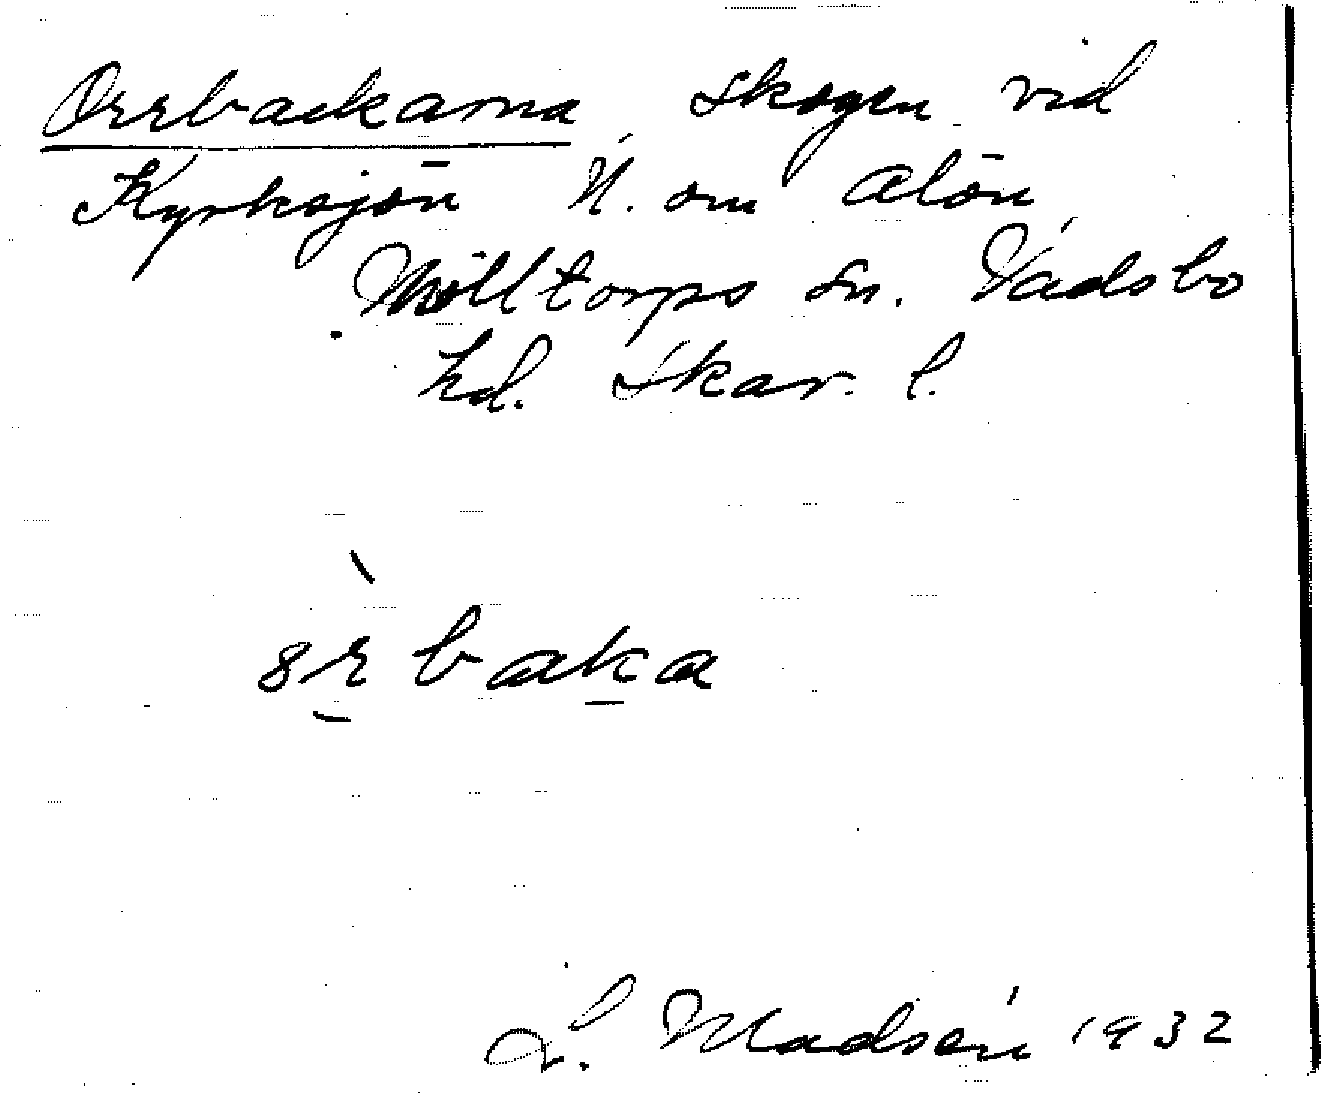 Orrbackarna, skogen vid
Kyrksjön N. om Alön
Mölltorps sn. Vadsbo
hd. Skar. l.
baka
L. Madsén 1932